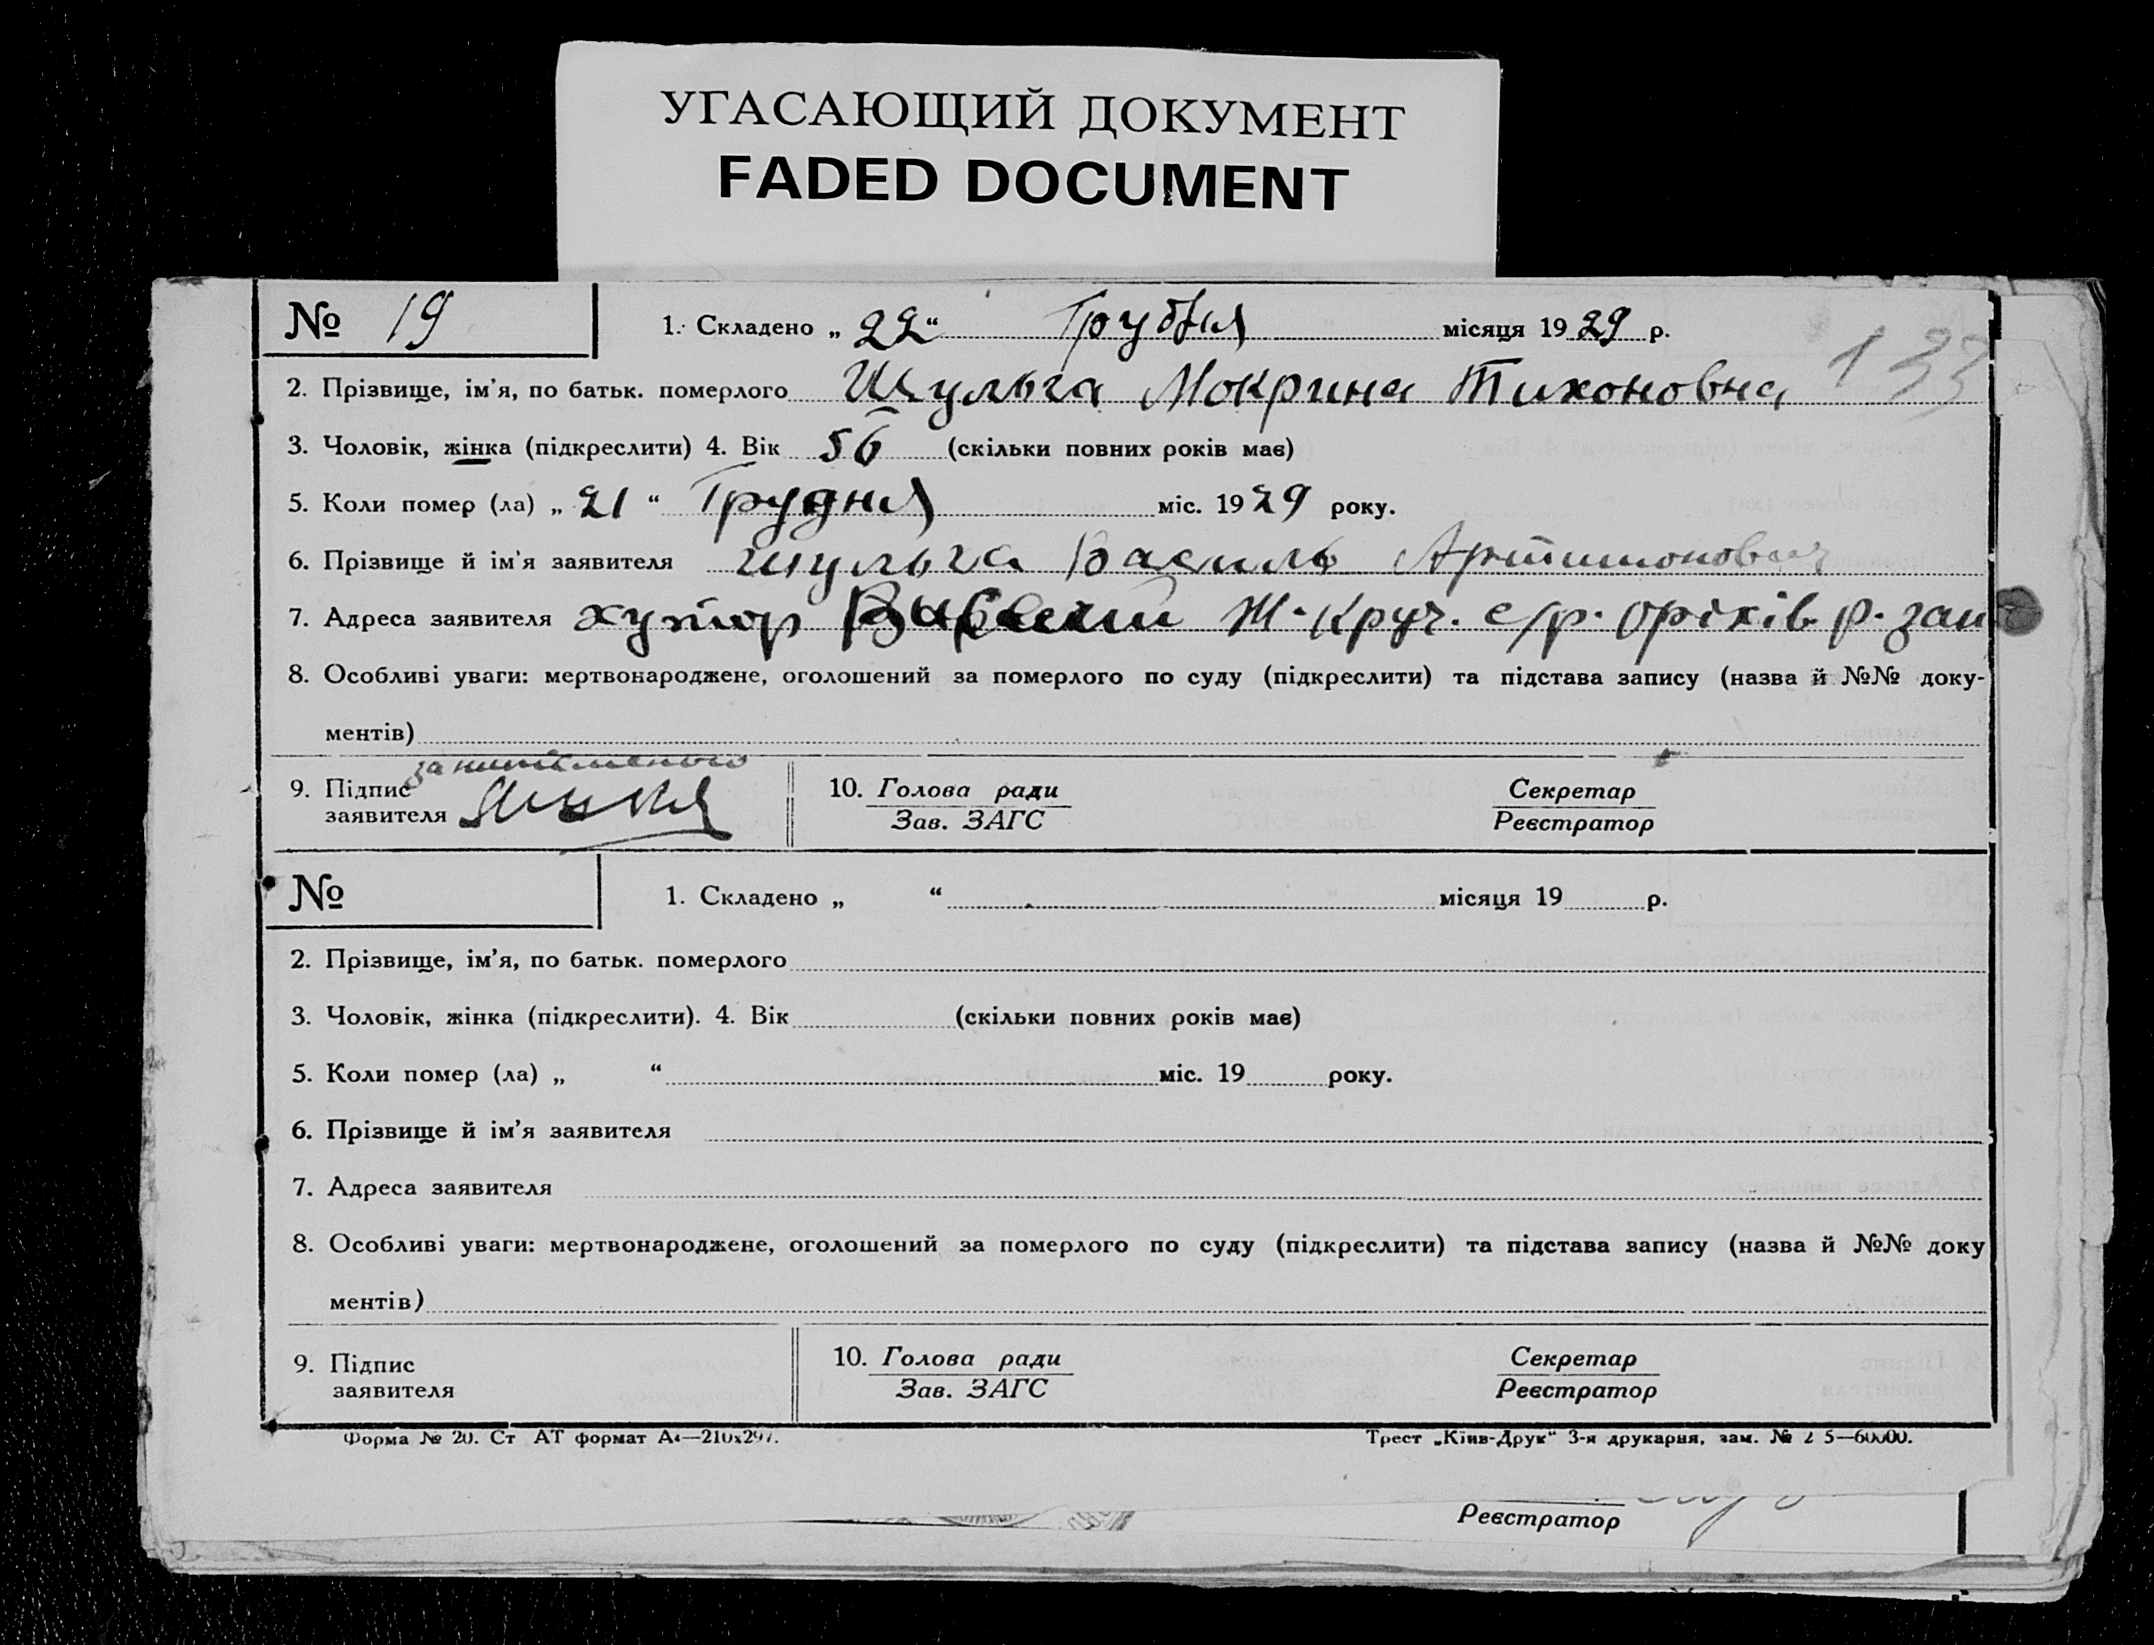 УГАСАЮЩИЙ ДОКУМЕНТ
FADED DOCUMENT
№ 19
1. Складено „ 22 “ Грудня місяця 1929 р.
133
2. Прізвище, ім'я, по батьк. померлого Шульга Мокрина Тихоновна
3. Чоловік, жінка (підкреслити) 4. Вік 56 (скільки повних років має)
5. Коли помер (ла) „ 21 “ Грудня міс. 1929 року.
6. Прізвище й ім'я заявителя шульга Василь
7. Адреса заявителя хутор Ж. Круч. с/р. Оріхів. р. зап
8. Особливі уваги: мертвонароджене, оголошений за померлого по суду (підкреслити) та підстава запису (назва й №№ доку-
ментів)
9. Підпис
заявителя
10. Голова ради
Зав. ЗАГС
Секретар
Реєстратор
№
1. Складено „ “ місяця 19 р.
2. Прізвище, ім'я, по батьк. померлого
3. Чоловік, жінка (підкреслити). 4. Вік (скільки повних років має)
5. Коли помер (ла) „ “ міс. 19 року.
6. Прізвище й ім'я заявителя
7. Адреса заявителя
8. Особливі уваги: мертвонароджене, оголошений за померлого по суду (підкреслити) та підстава запису (назва й №№ доку
ментів)
9. Підпис
заявителя
10. Голова ради
Зав. ЗАГС
Секретар
Реєстратор
Форма № 20. Ст АТ формат А4—210х297.
Трест „Київ-Друк“ 3-я друкарня, зам. № 2 5—60000.
Реєстратор